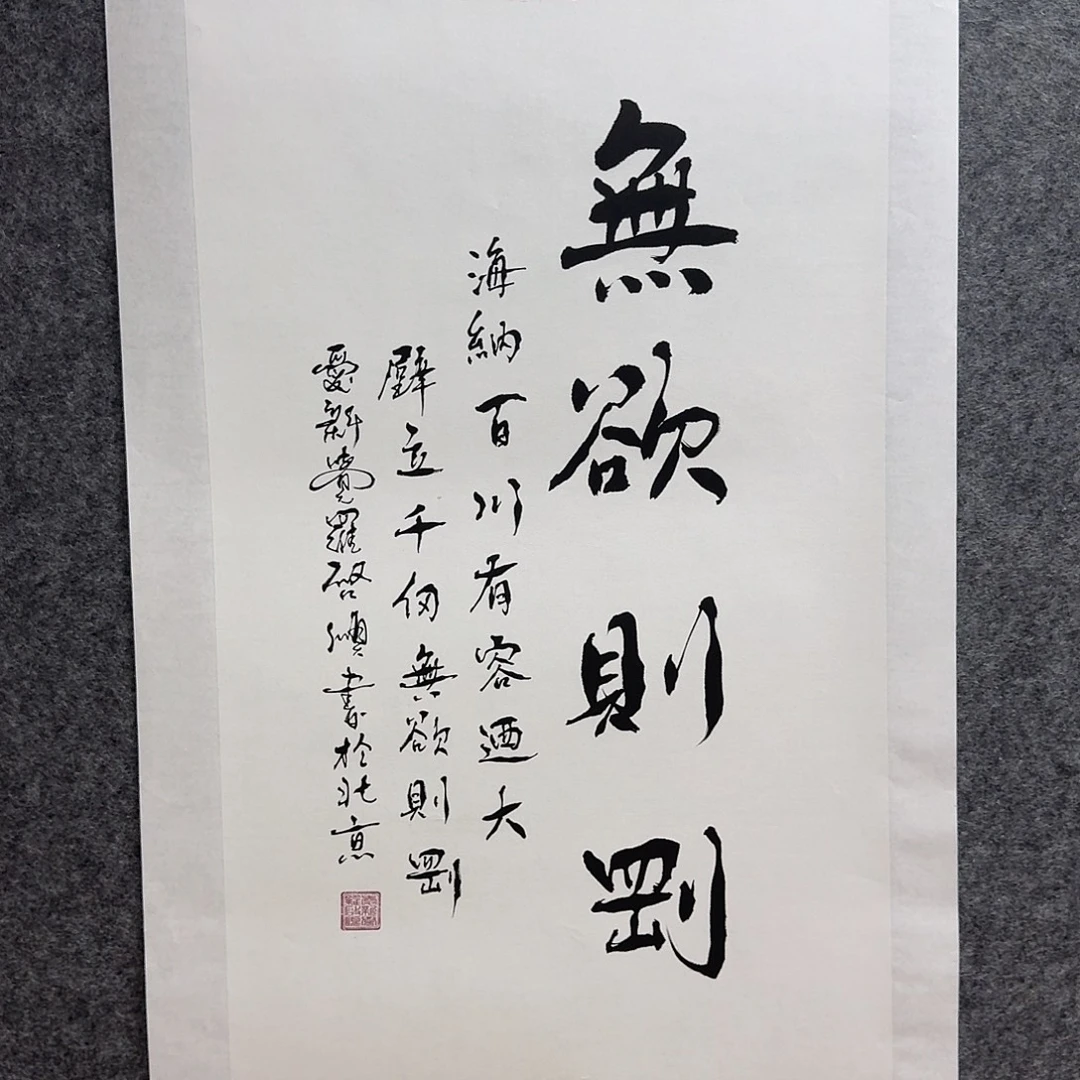 無欲則剛
海納百川有容迺大
壁立千仞無欲則剛
愛新覺羅啓績書於北京